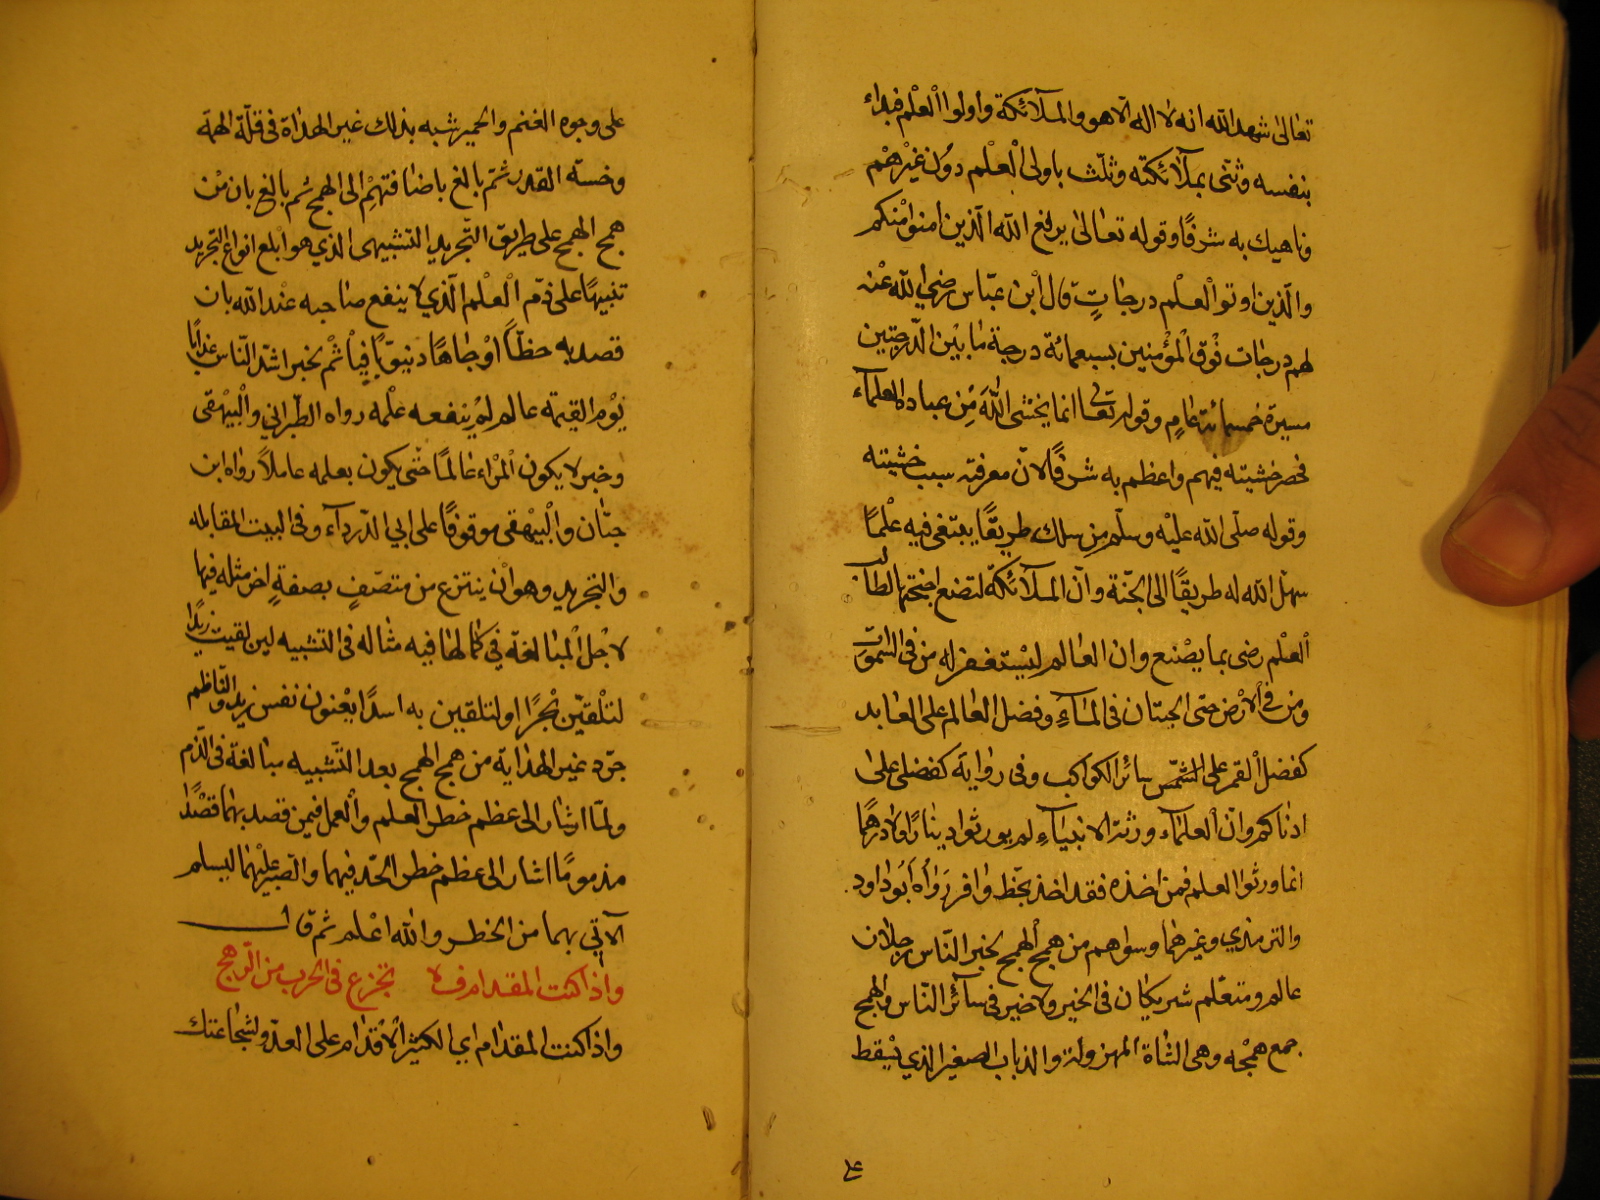 تعالى شهد الله انه لا اله الا هو والملآئكة واولوا العلم فبداء
بنفسه وثنى بملآئكته وثلث باولى العلم دون غيرهم
وناهيك به شرفا وقوله تعالى يرفع الله الذين امنوا منكم
والذين اوتوا العلم درجات قال ابن عباس رضي الله عنه
لهم درجات فوق المؤمنين بسبعمائة درجة ما بين الدرجتين
مسيرة خمسمائة عام وقوله تعالى انما يخشى الله من عباده العلمآء
فحصر خشيته فيهم واعظم به شرفا لان معرفته سبب خشيته
وقوله صلى الله عليه وسلم من سلك طريقا يبتغى فيه علما
سهل الله له طريقا الى الجنة وان الملآئكة لتضع اجنحتها لطالب
العلم رضى بما يصنع وان العالم ليستغفر له من فى السموات
ومن فى الارض حتى الحيتان فى المآء وفضل العالم على العابد
كفضل القمر على الشمس سائر الكواكب وفى رواية كفضلى على
ادناكم وان العلمآء ورثة الانبيآء لم يورثوا دينارا ولا درهما
انما ورثوا العلم فمن اخذه فقد اخذ بحظ وافر رواه ابو داود
والترمذي وغيرهما وسواهم من همج الهمج لخبر الناس رجلان
عالم ومتعلم شريكان فى الخير ولا خير فى سآئر الناس والهمج
جمع همجه وهى الشاة المهزولة والذباب الصغير الذي يسقط
على وجوه الغنم والحمير شبه بذلك غير الهداة فى قلة الهمة
وخسة القدر ثم بالغ باضافتهم الى الهمج ثم بالغ بان من
همج الهمج على طريق التجريد التشبيهى الذي هو ابلغ انواع التجريد
تنبيها على ذم العلم الذي لا ينفع صاحبه عند الله بان
قصد به حظا او جاها دنيويا فيا ثم لخبر اشد الناس عذابا
يوم القيمة عالم لم ينفعه علمه رواه الطبراني والبيهقى
وخبر لا يكون المراء عالما حتى يكون بعلمه عاملا رواه ابن
حبان والبيهقى موقوفا على ابي الدردآء وفى البيت المقابله
والتجريد وهو ان ينتزع من متصف بصفة اخر مثله فيها
لاجل المبالغة في كمالها فيه مثاله فى التشبيه لين لقيت زيدا
لتلقين بحرا او لتلقين به اسدا يعنون نفس زيد والناظم
جرد غير الهداية من همج الهمج بعد التشبيه مبالغة فى الذم
ولما اشار الى عظم خطر العلم والعمل فيمن قصد بهما قصدا
مذموما اشار الى عظم خطر الجد فيهما والصبر عليهما ليسلم
الآتي بهما من الخطر والله اعلم ثم قال
واذا كنت المقدام فلا تجزع فى الحرب من الرهج
واذا كنت المقدام اي الكثير الاقدام على العدو لشجاعتك